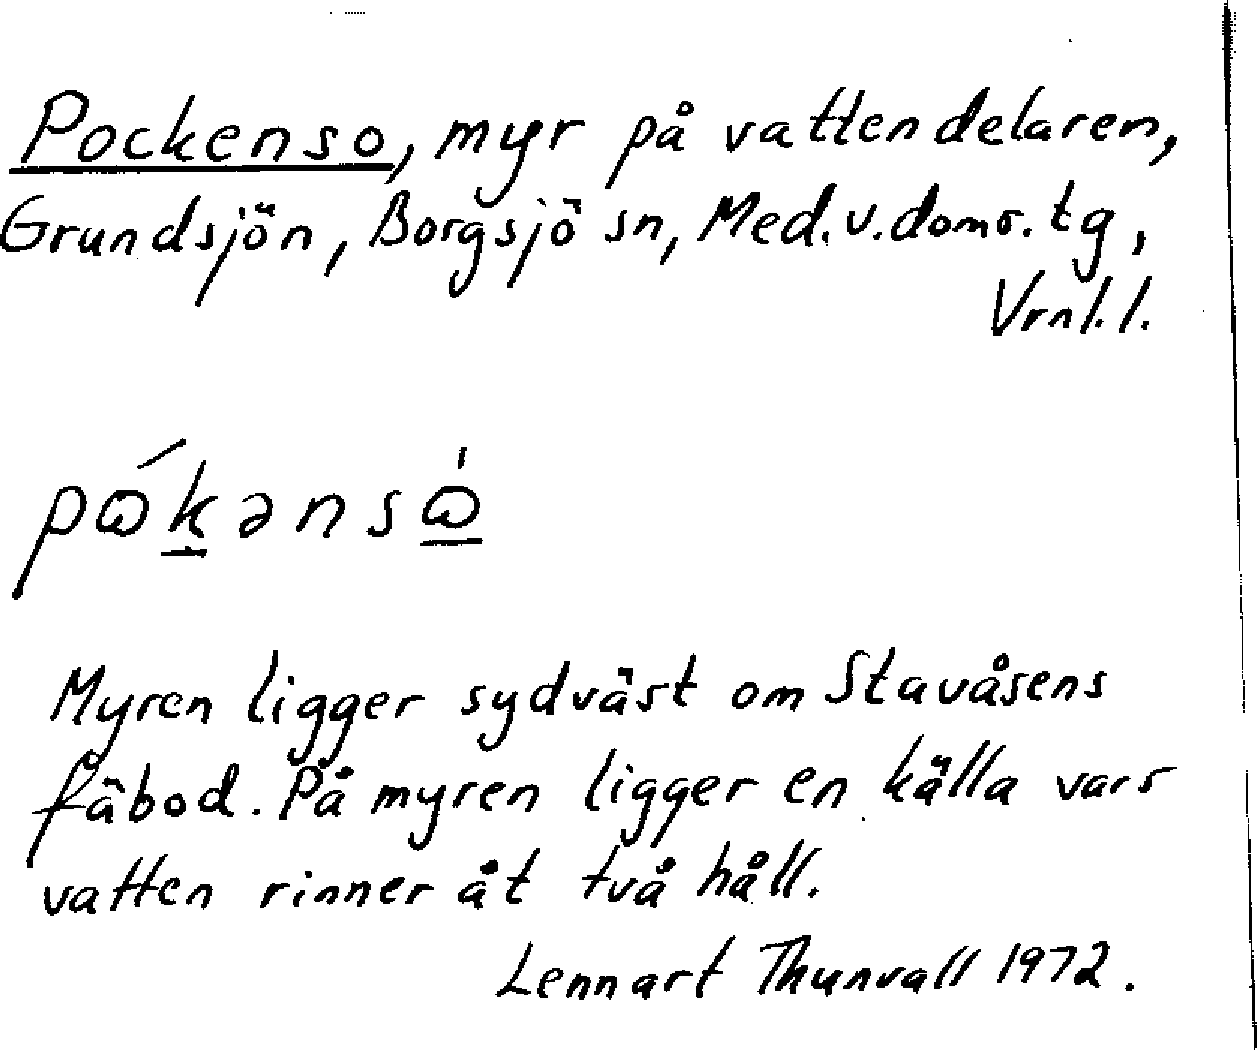 Pockenso, myr på vattendelaren,
Grundsjön, Borgsjö sn, Med.v.doms.tg,
Vrnl.l.
Myren ligger sydväst om Stavåsens
fäbod. På myren ligger en källa vars
vatten rinner åt två håll.
Lennart Thunvall 1972.